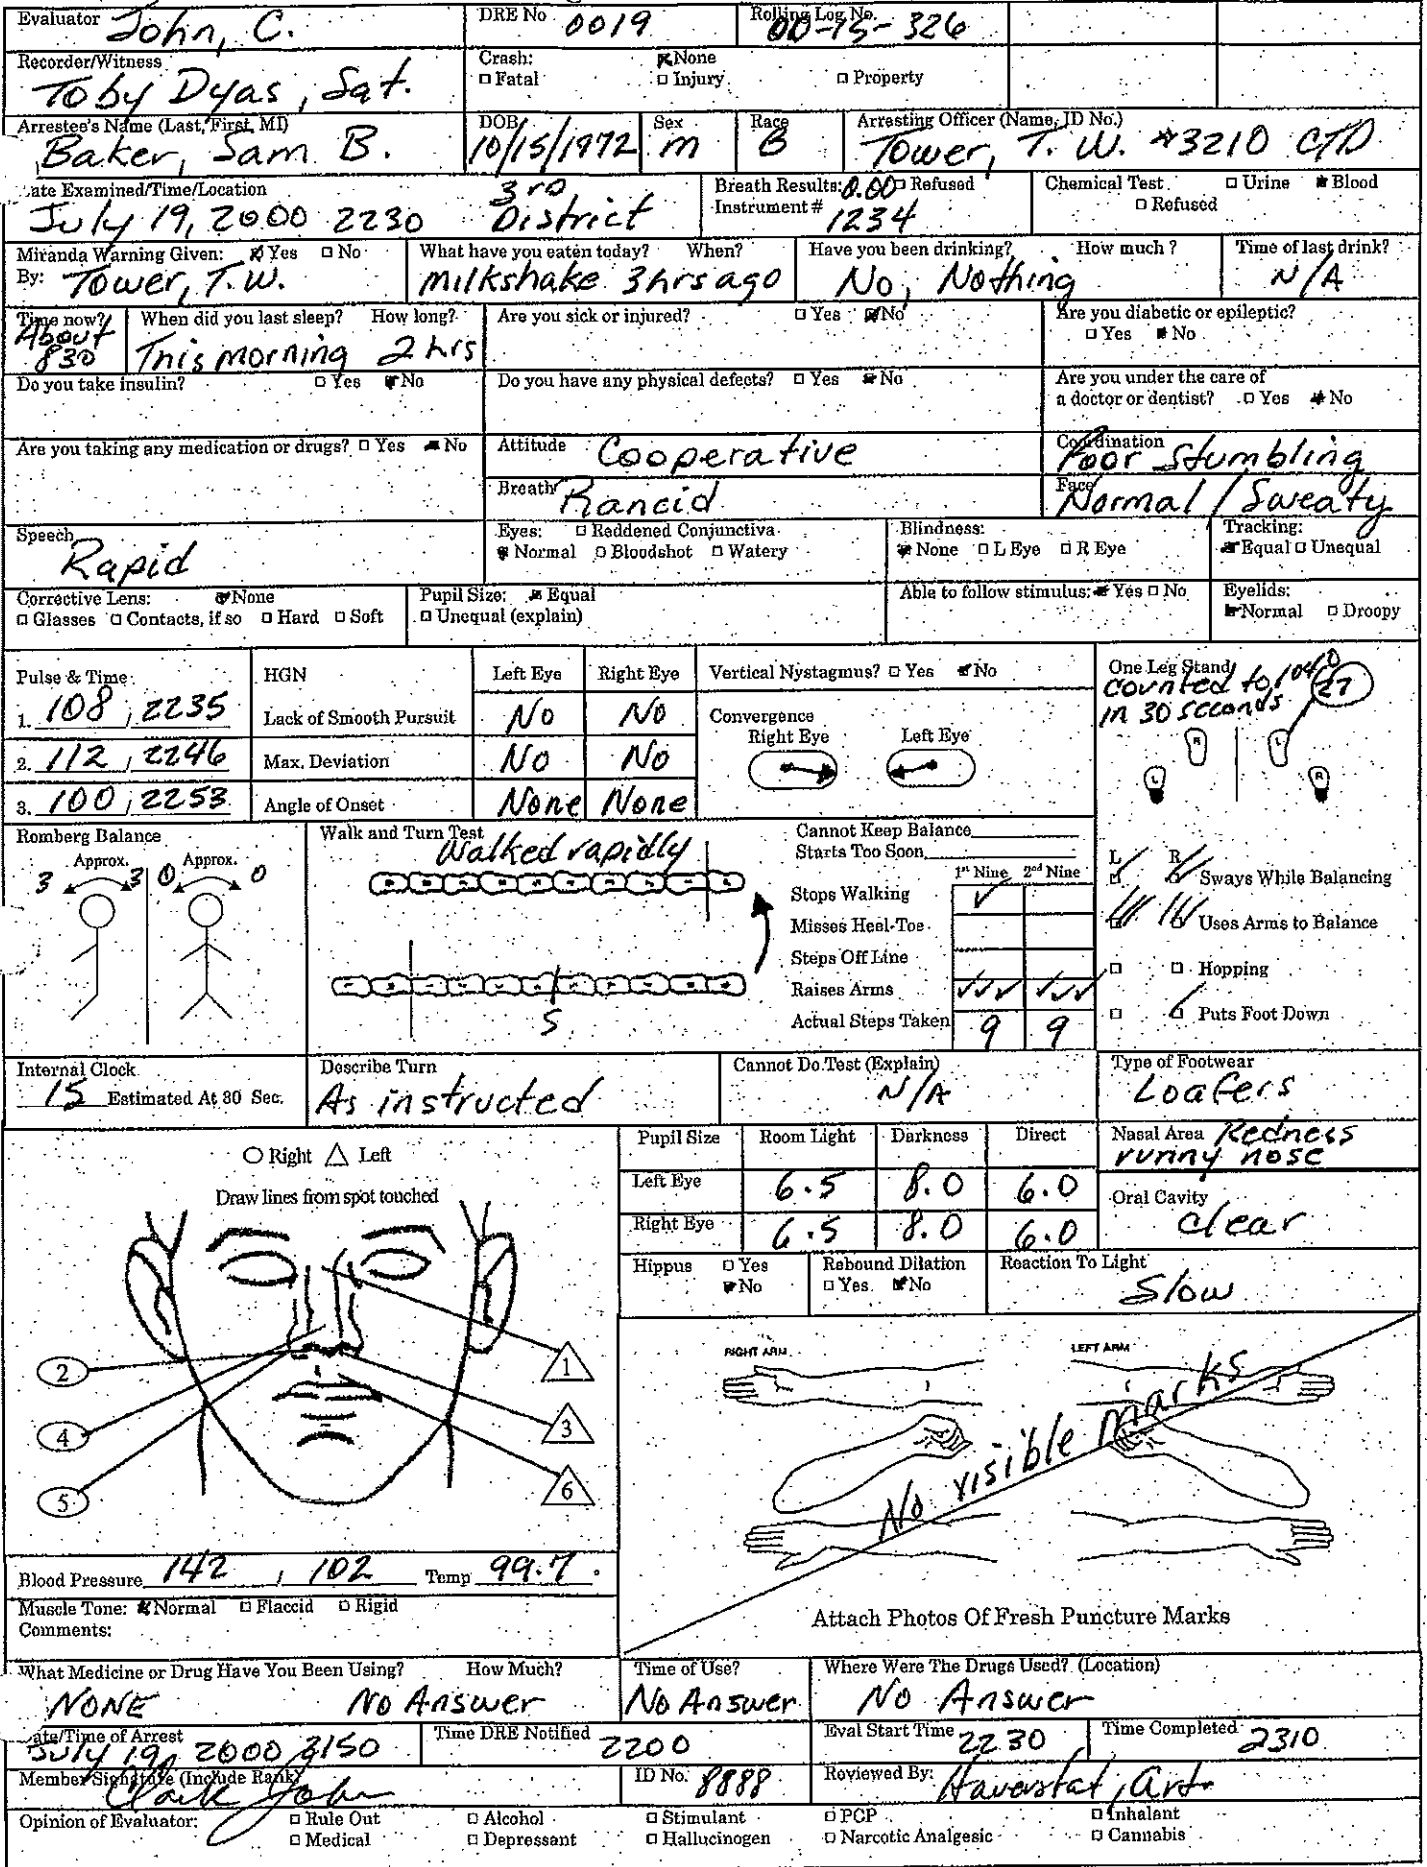 Evaluator John, C.
DRE No 0019
Rolling Log No. 00-15-326
Recorder/Witness Toby Dyas, Sgt.
Crash: None
Fatal Injury Property
Arrestee's Name (Last, First, MI) Baker, Sam B.
DOB 10/15/1972
Sex M
Race B
Arresting Officer (Name, ID No.) Tower, T. W. #3210 CTD
ate Examined/Time/Location July 19, 2000 2230 3rd District
Breath Results: 0.00 Refused
Instrument # 1234
Chemical Test Urine Blood
Refused
Miranda Warning Given: Yes No
By: Tower, T.W.
What have you eaten today? When?
Milkshake 3hrs ago
Have you been drinking? How much?
No, Nothing
Time of last drink?
N/A
Time now? About 830
When did you last sleep? How long?
This morning 2 hrs
Are you sick or injured? Yes No
Are you diabetic or epileptic?
Yes No
Do you take insulin? Yes No
Do you have any physical defects? Yes No
Are you under the care of
a doctor or dentist? Yes No
Are you taking any medication or drugs? Yes No
Attitude Cooperative
Coordination Poor Stumbling
Breath Rancid
Face Normal / Sweaty
Speech Rapid
Eyes: Reddened Conjunctiva
Normal Bloodshot Watery
Blindness:
None L Eye R Eye
Tracking:
Equal Unequal
Corrective Lens: None
Glasses Contacts, if so Hard Soft
Pupil Size: Equal
Unequal (explain)
Able to follow stimulus: Yes No
Eyelids:
Normal Droopy
Pulse & Time
1. 108, 2235
2. 112, 2246
3. 100, 2253
HGN Left Eye Right Eye
Lack of Smooth Pursuit No No
Max. Deviation No No
Angle of Onset None None
Vertical Nystagmus? Yes No
Convergence
Right Eye Left Eye
One Leg Stand
counted to 1040
27
in 30 seconds
R L
L R
Romberg Balance
Approx. Approx.
3 3 0 0
Walk and Turn Test
Walked rapidly
S
Cannot Keep Balance
Starts Too Soon
1st Nine 2nd Nine
Stops Walking
Misses Heel-Toe
Steps Off Line
Raises Arms
Actual Steps Taken 9 9
L R
Sways While Balancing
Uses Arms to Balance
Hopping
Puts Foot Down
Internal Clock
15 Estimated At 30 Sec.
Describe Turn
As instructed
Cannot Do Test (Explain)
N/A
Type of Footwear
Loafers
Right Left
Draw lines from spot touched
2 4 5
1 3 6
Pupil Size Room Light Darkness Direct
Left Eye 6.5 8.0 6.0
Right Eye 6.5 8.0 6.0
Nasal Area Redness
runny nose
Oral Cavity
clear
Hippus Yes
No
Rebound Dilation
Yes No
Reaction To Light
Slow
RIGHT ARM LEFT ARM
No visible marks
Attach Photos Of Fresh Puncture Marks
Blood Pressure 142, 102 Temp 99.7
Muscle Tone: Normal Flaccid Rigid
Comments:
What Medicine or Drug Have You Been Using? How Much?
NONE No Answer
Time of Use?
No Answer
Where Were The Drugs Used? (Location)
No Answer
ate/Time of Arrest
July 19, 2000 2150
Time DRE Notified
2200
Eval Start Time 2230
Time Completed 2310
Member Signature (Include Rank)
Clark John
ID No. 8888
Reviewed By:
Opinion of Evaluator: Rule Out Alcohol Stimulant PCP Inhalant
Medical Depressant Hallucinogen Narcotic Analgesic Cannabis